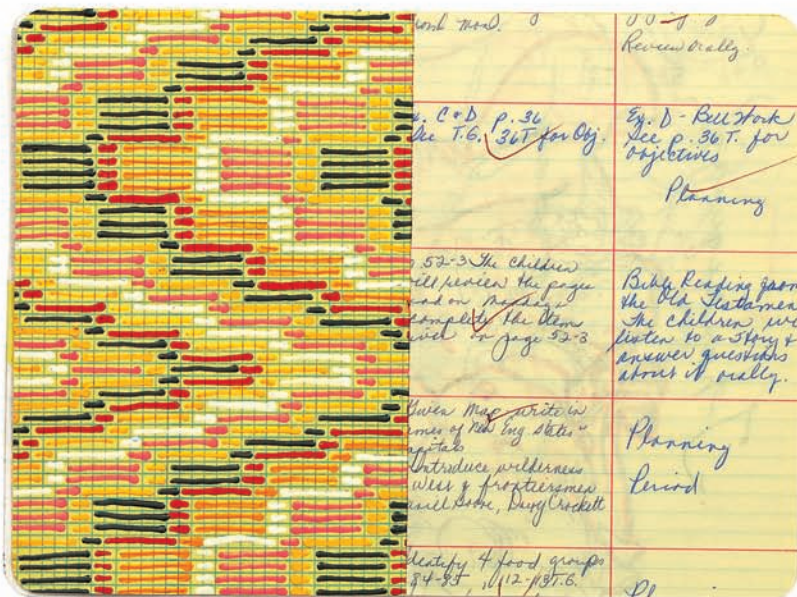 Mond.
Review orally.
. C & D p. 36
See T.G. 36T for Obj.
Ex. D - Bell Work
See p. 36 T. for
objectives
Planning
52-3 The children
will review the pages
on Monday &
complete the items
on page 52-3
Bible Reading from
the Old Testamen
The children wi
listen to a story &
answer questions
about it orally.
Given map write in
names of New Eng. States &
capitals
Introduce wilderness
West & frontiersmen
Daniel Boone, Davy Crockett
Planning
Period
dentify 4 food groups
84-85 , 112-113 T.G.